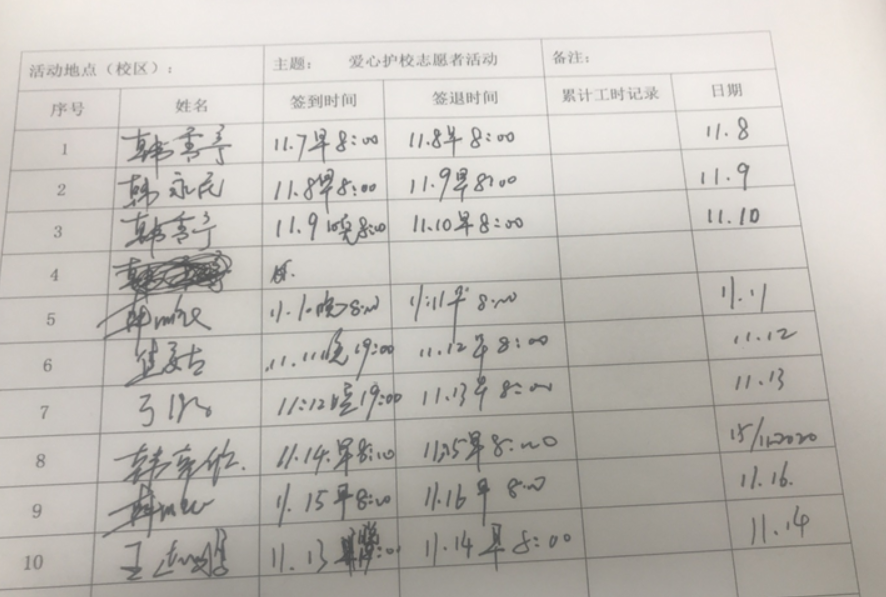 活动地点（校区）： 主题： 爱心护校志愿者活动 备注：
序号 姓名 签到时间 签退时间 累计工时记录 日期
1 韩 11.7早8:00 11.8早8:00 11.8
2 韩永民 11.8早8:00 11.9早8:00 11.9
3 韩 11.9晚8:00 11.10早8:00 11.10
4
5 11.10晚8:00 11.11早8:00 11.11
6 11.11晚19:00 11.12早8:00 11.12
7 11:12晚19:00 11.13早8:00 11.13
8 韩 11.14.早8:00 11.15早8:00 15/11-2020
9 11.15早8:00 11.16早8:00 11.16.
10 王 11.13 11.14早8:00 11.14